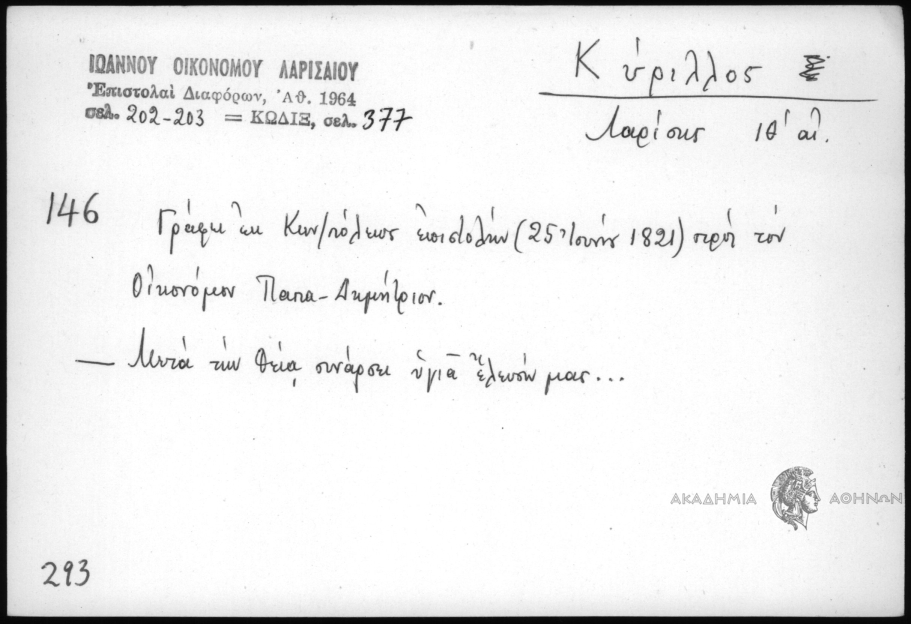 ΙΩΑΝΝΟΥ ΟΙΚΟΝΟΜΟΥ ΛΑΡΙΣΑΙΟΥ
Ἐπιστολαὶ Διαφόρων, Ἀθ. 1964
σελ. 202-203 = ΚΩΔΙΞ, σελ. 377
Κύριλλος
Λαρίσης ΙΘ' αἰ.
146 Γράφει ἐκ Κων/πόλεως ἐπιστολήν (25 Ἰουνίου 1821) πρὸς τὸν
Οἰκονόμον Παπα-Δημήτριον.
— Μετὰ τὴν θείᾳ συνάρσει ὑγιᾶ ἔλευσίν μας...
ΑΚΑΔΗΜΙΑ ΑΘΗΝΩΝ
293